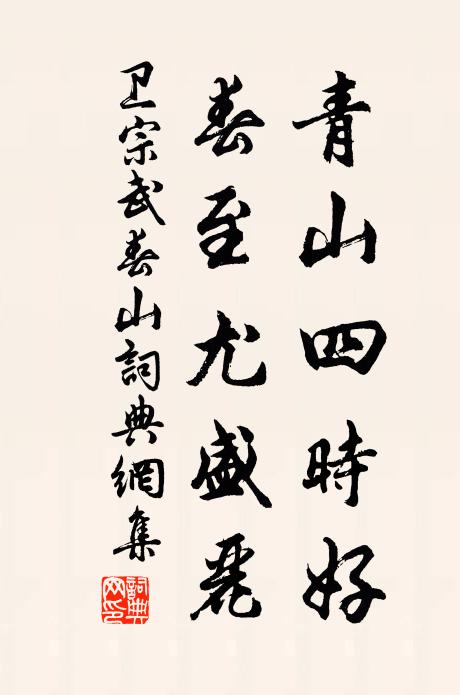 青山四時好
春至尤盛麗
卫宗武春山詞典網集
詞典
网印